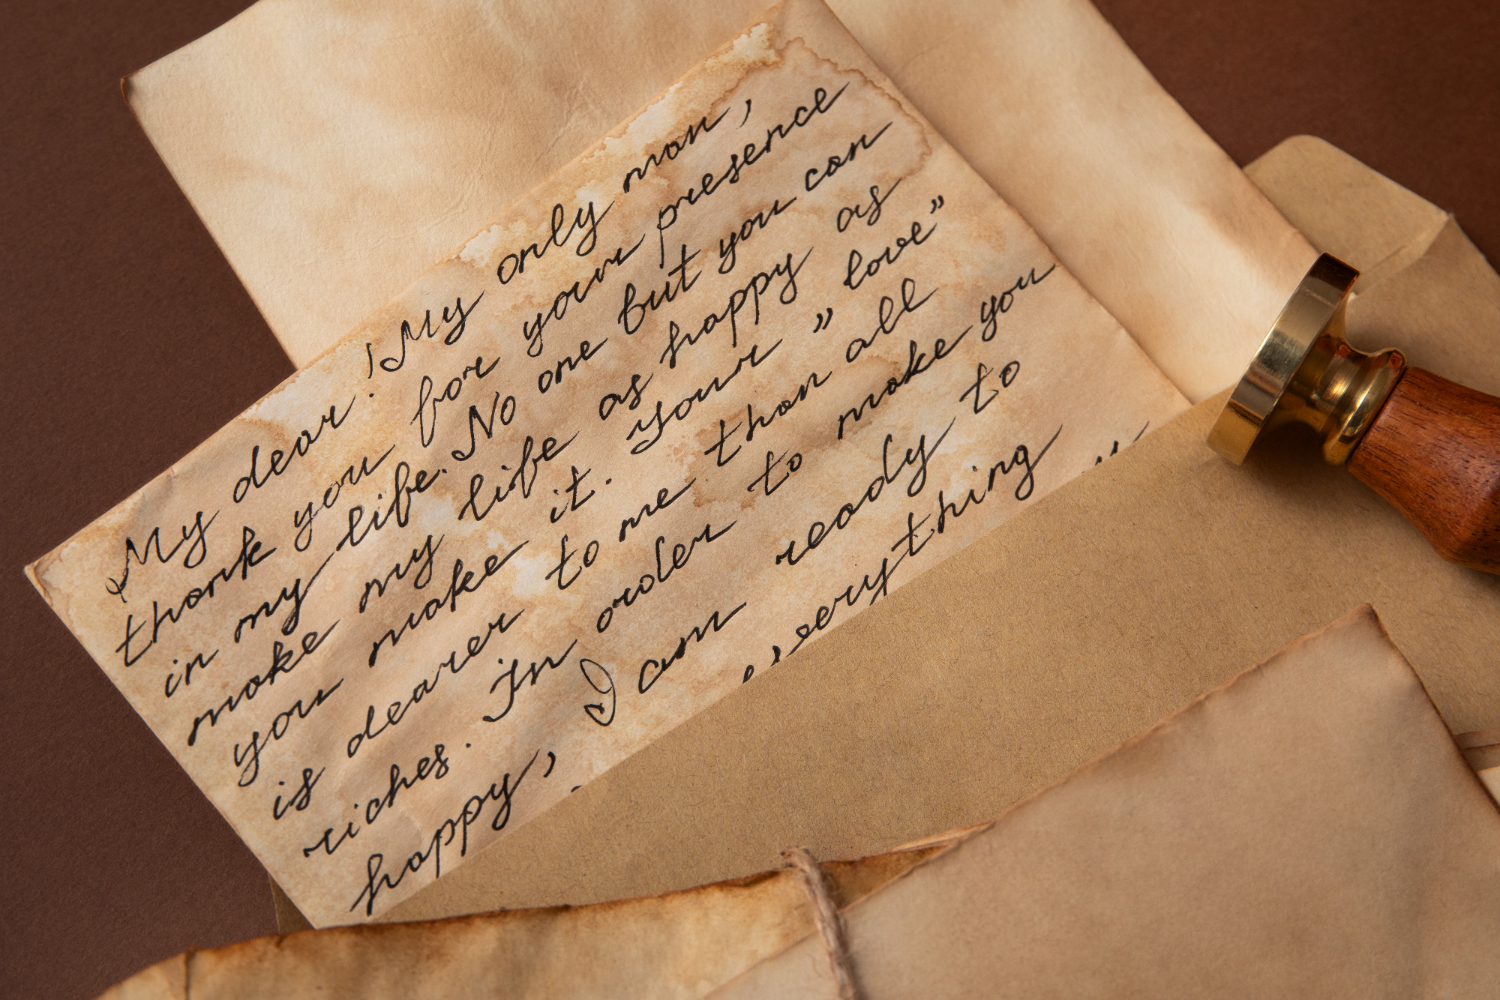 My dear! My only man,
thank you for your presence
in my life. No one but you can
make my life as happy as
you make it. Your „ love”
is dearer to me than all
riches. In order to make you
happy, I am ready to
everything